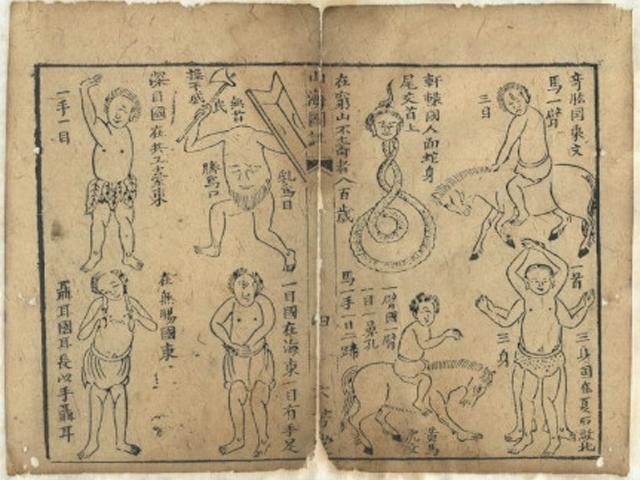 奇肱國乘文
馬一臂
三目
軒轅國人面蛇身
尾交首上
在窮山不壽者八百歲
一首
三身
三身國在夏后啟北
一臂國一臂
一目一鼻孔
馬一手一目二蹄
黃馬
虎文
山海圖
四
無首
操干戚
乳爲目
臍爲口
深目國在共工臺東
一手一目
一目國在海東一目有手足
在無腸國東
聶耳國耳長以手聶耳